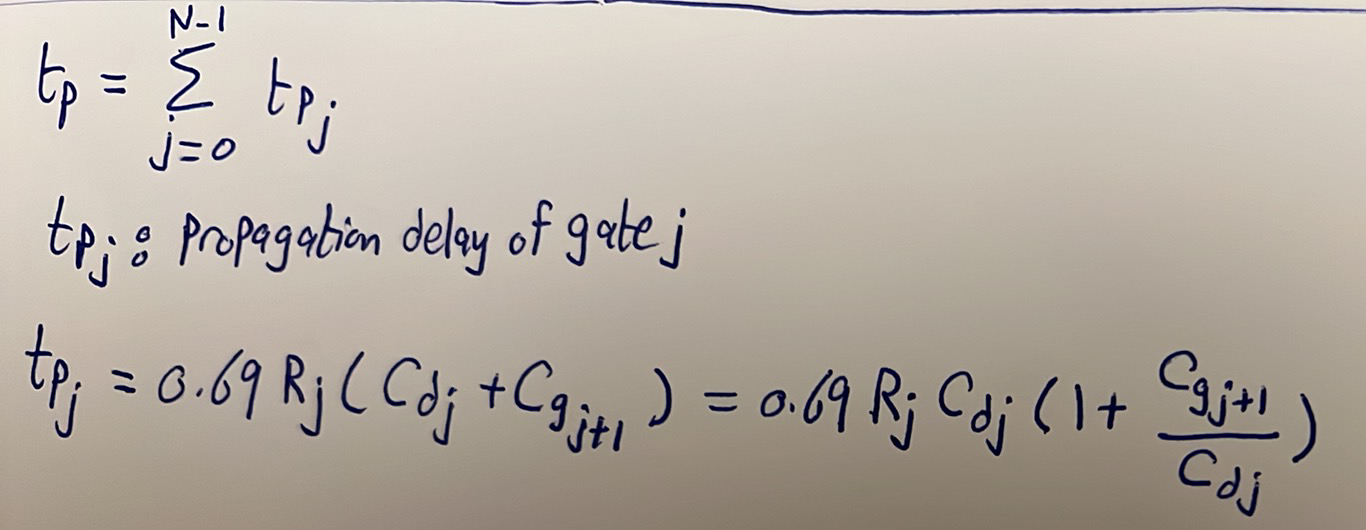 t_p = \sum_{j=0}^{N-1} t_{p_j}
t_{p_j} : Propagation delay of gate j
t_{p_j} = 0.69 R_j ( C_{d_j} + C_{g_{j+1}} ) = 0.69 R_j C_{d_j} ( 1 + \frac{C_{g_{j+1}}}{C_{d_j}} )